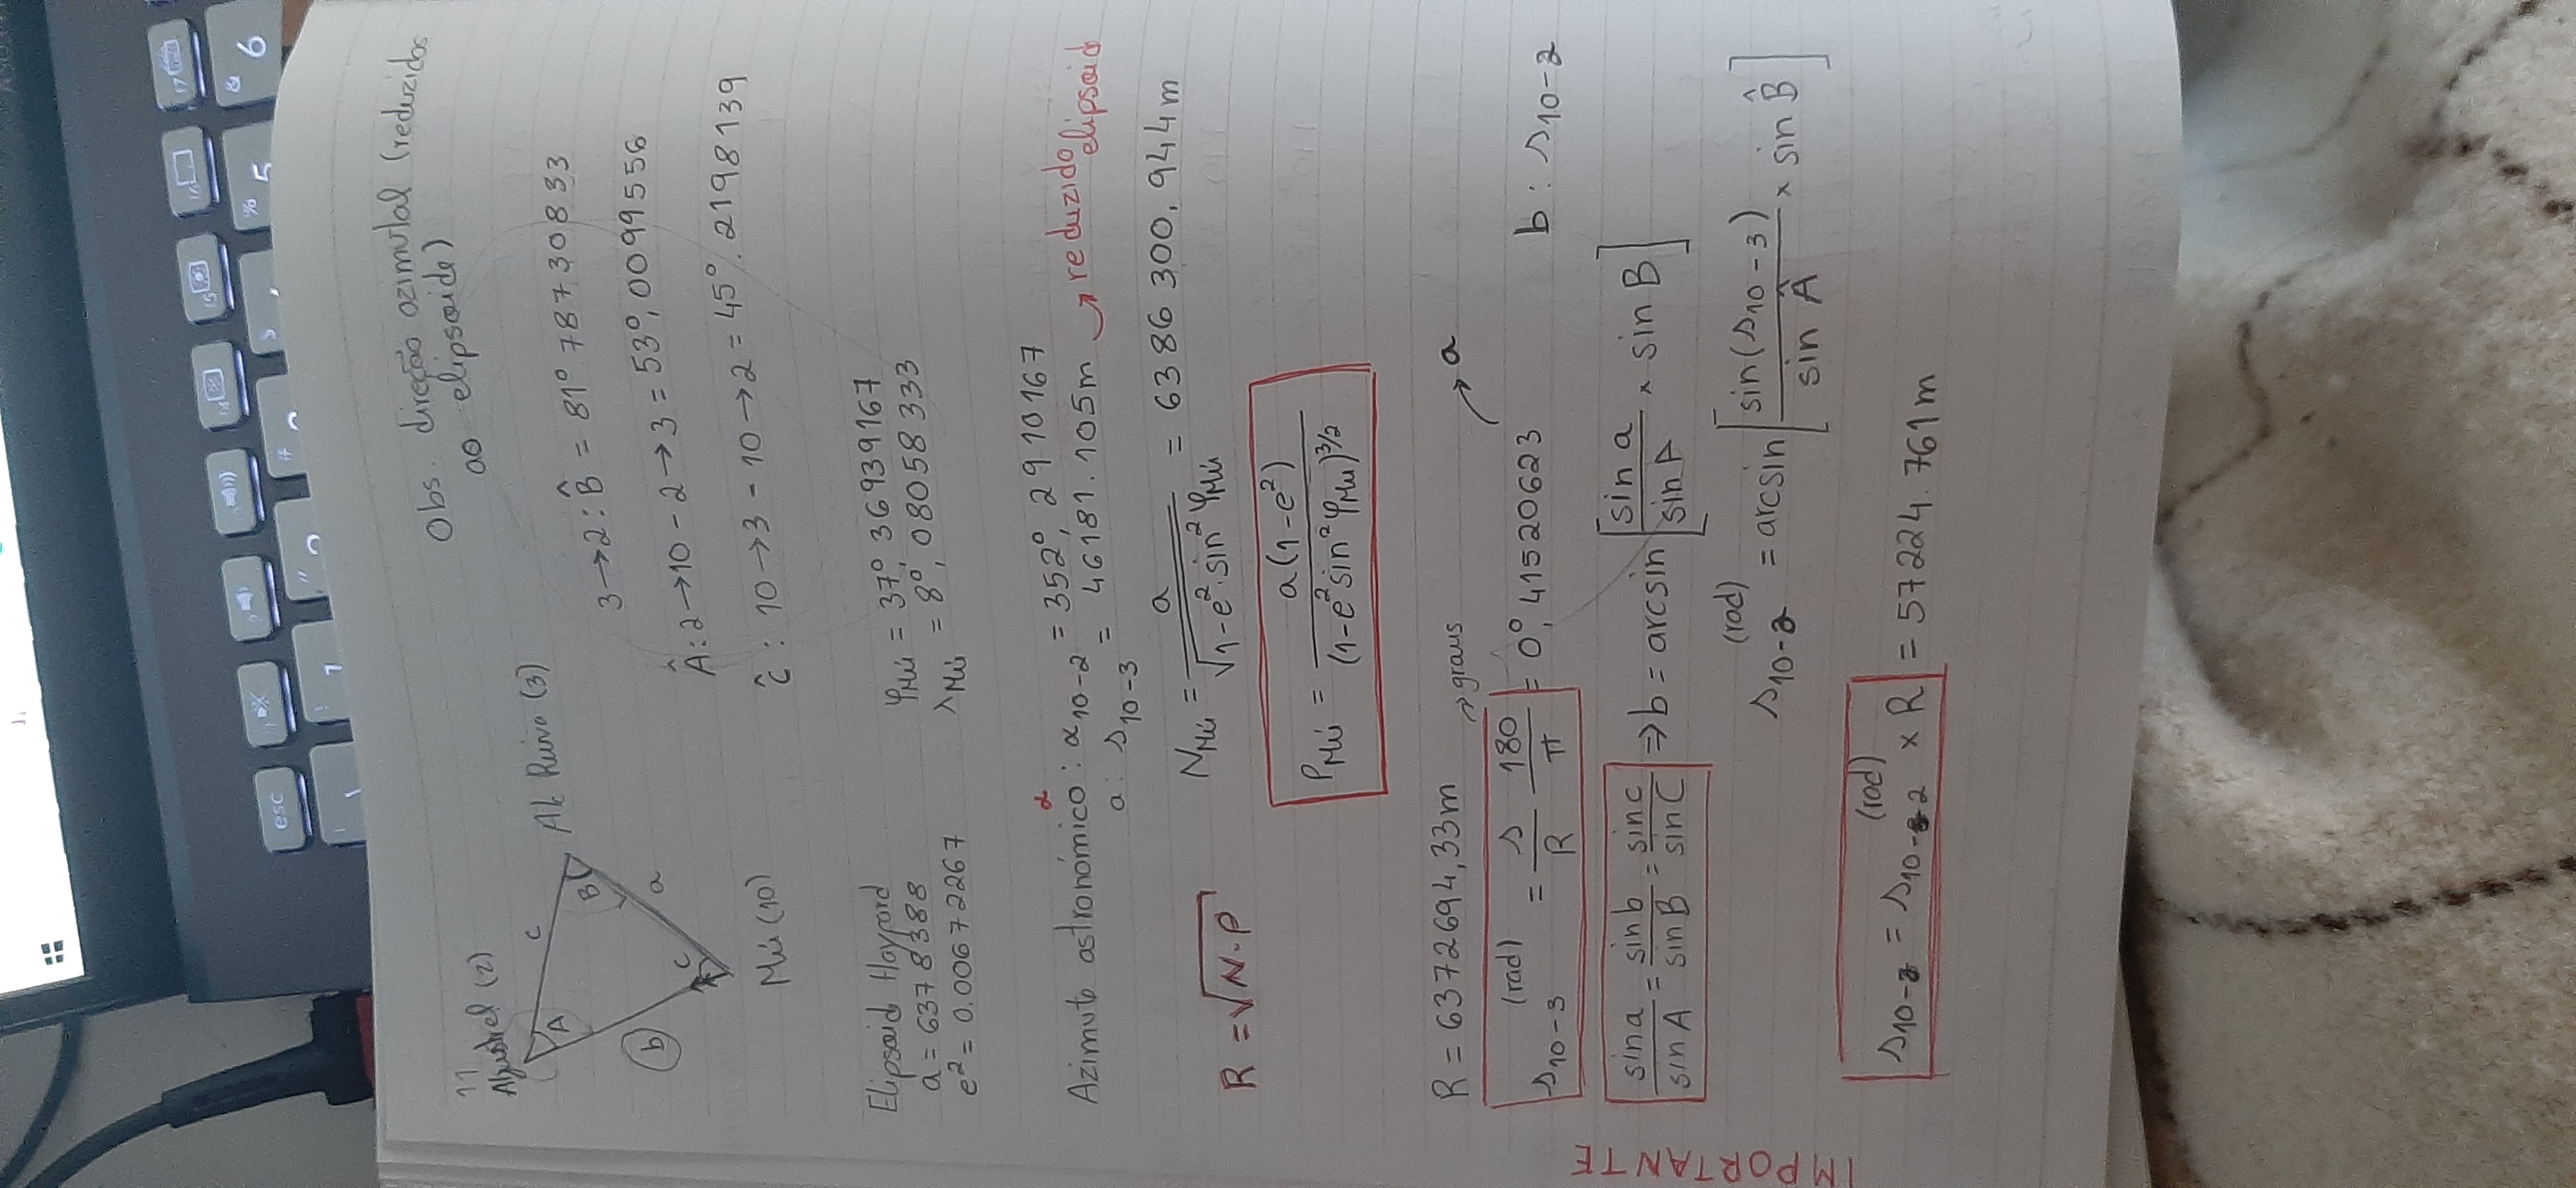 esc
% 5
& 6
11
Aljustrel (2)
Obs. direção azimutal (reduzidos
ao elipsoide)
c
A
Alc Ruiva (3)
B
3→2 : B̂ = 81° 78730833
b
a
Â: 2→10 - 2→3 = 53°,0099556
C
Mú (10)
ĉ : 10→3 - 10→2 = 45°. 2198139
Elipsoid Hayford
a = 6378388
e² = 0.00672267
φMú = 37°, 36939167
λMú = 8°, 08058333
α
Azimute astronómico : α10-2 = 352°, 2910167
a: s10-3 = 46181.105m → reduzido elipsoid
NMú = a / √1-e².sin²φMú = 6386300,944m
R = √N.ρ
ρMú = a(1-e²) / (1-e²sin²φMu)^3/2
R = 6372694,33m
→ graus
→ a
s10-3 (rad) = s/R 180/π = 0°, 41520623
b : s10-2
IMPORTANTE
sin a / sin A = sin b / sin B = sin c / sin C ⇒ b = arcsin [sin a / sin A × sin B]
s10-2 (rad) = arcsin [sin(s10-3) / sin Â × sin B̂]
s10-2 = s10-2 (rad) × R = 57224.761m